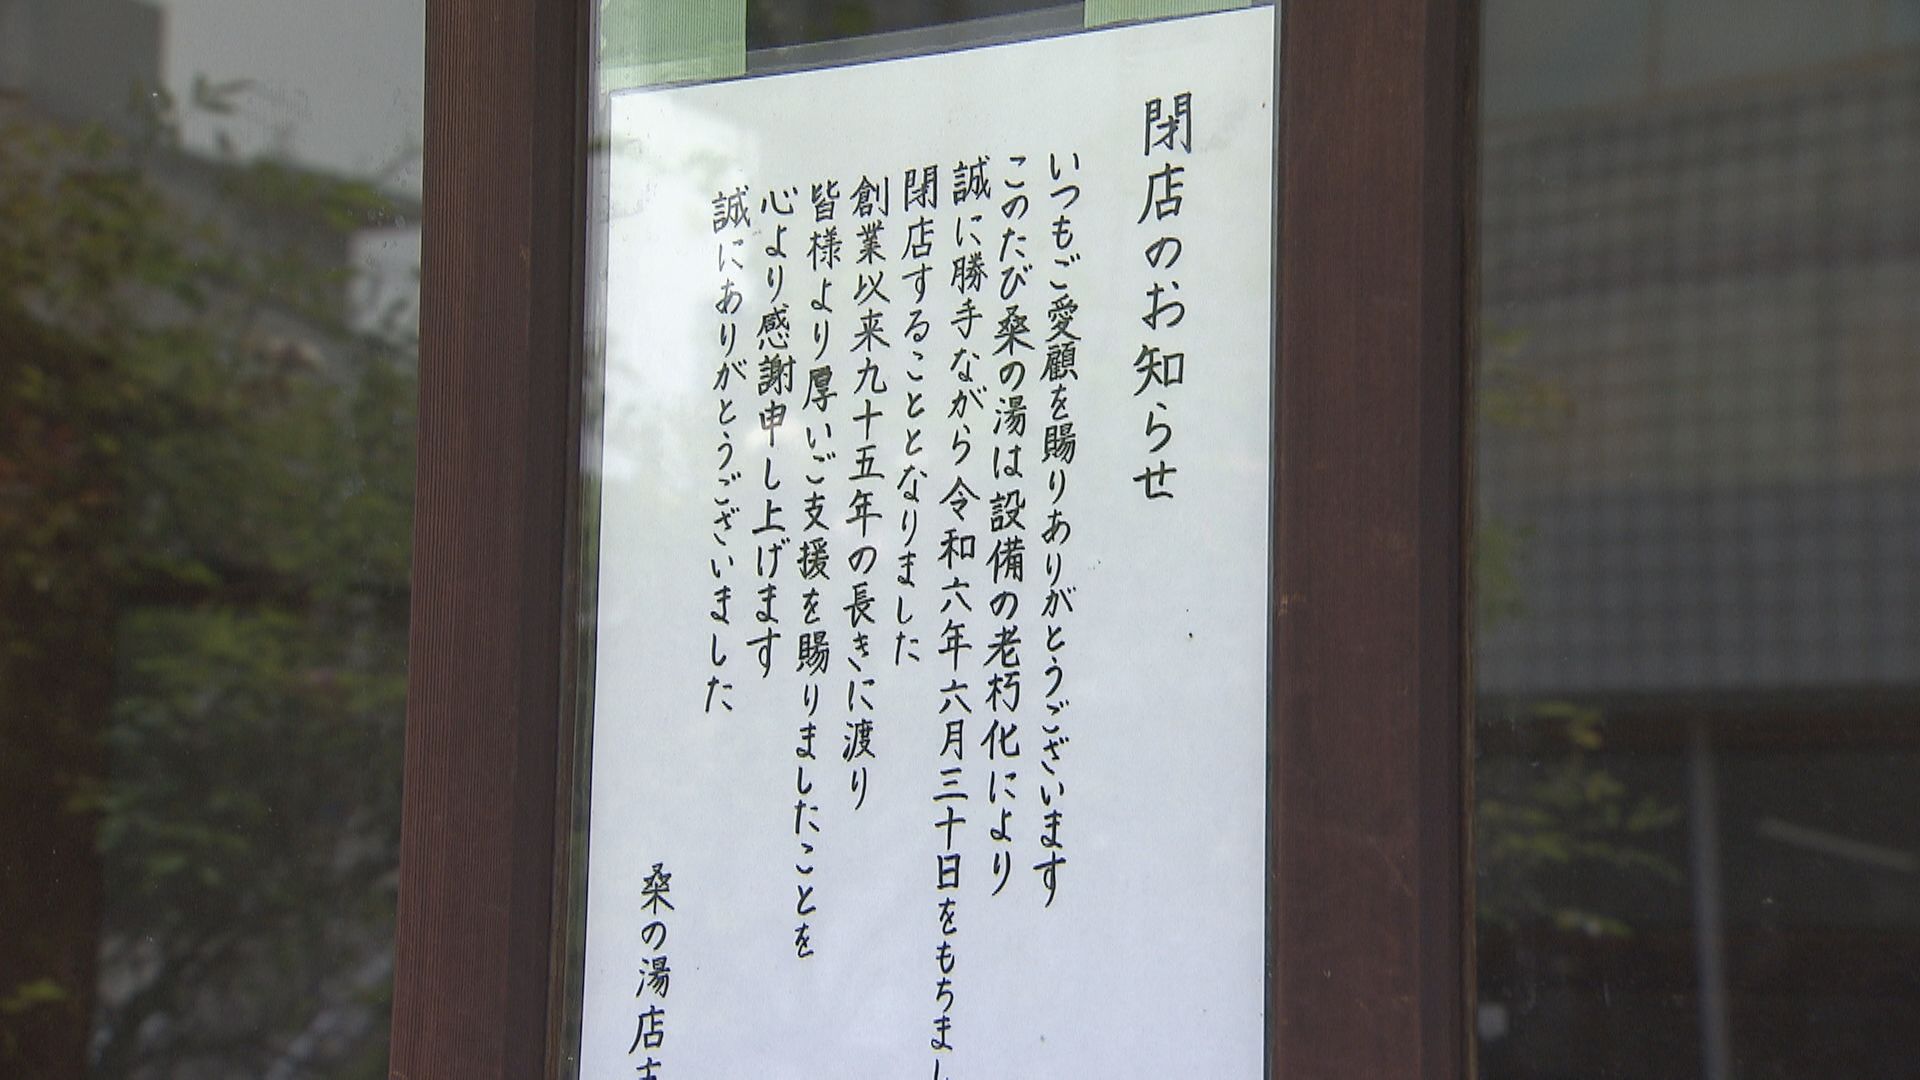 閉店のお知らせ
いつもご愛顧を賜りありがとうございます
このたび桑の湯は設備の老朽化により
誠に勝手ながら令和六年六月三十日をもちまし
閉店することとなりました
創業以来九十五年の長きに渡り
皆様より厚いご支援を賜りましたことを
心より感謝申し上げます
誠にありがとうございました
桑の湯店